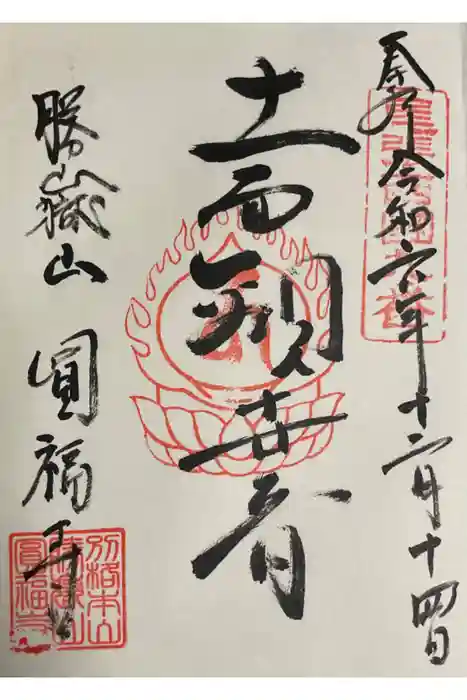 奉拝 令和六年十二月十四日
十一面観世音
勝嶽山 圓福寺
別格本山
圓福寺